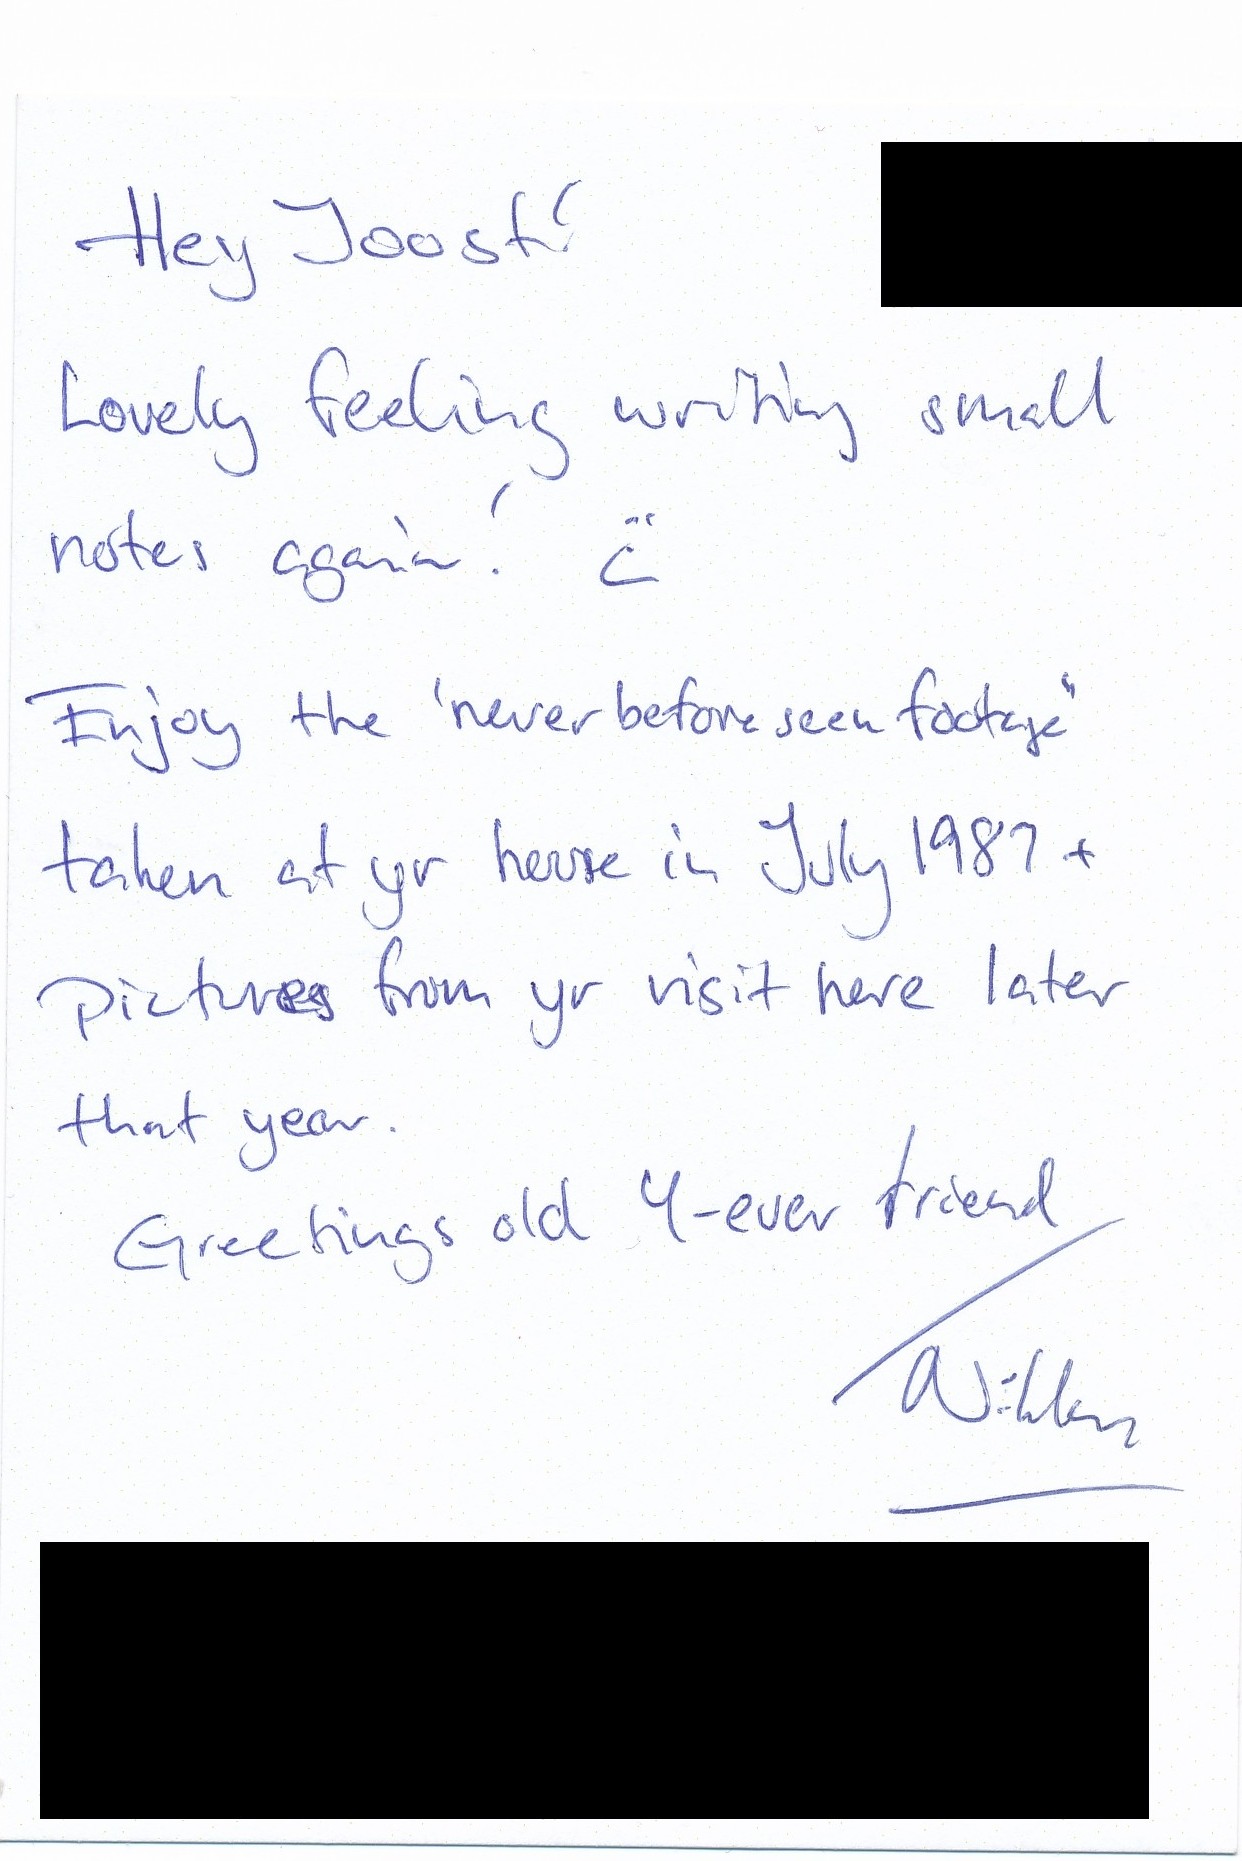 Hey Joost!
Lovely feeling writing small
notes again! :)
Enjoy the 'never before seen footage"
taken at yr house in July 1987 +
pictures from yr visit here later
that year.
Greetings old 4-ever friend